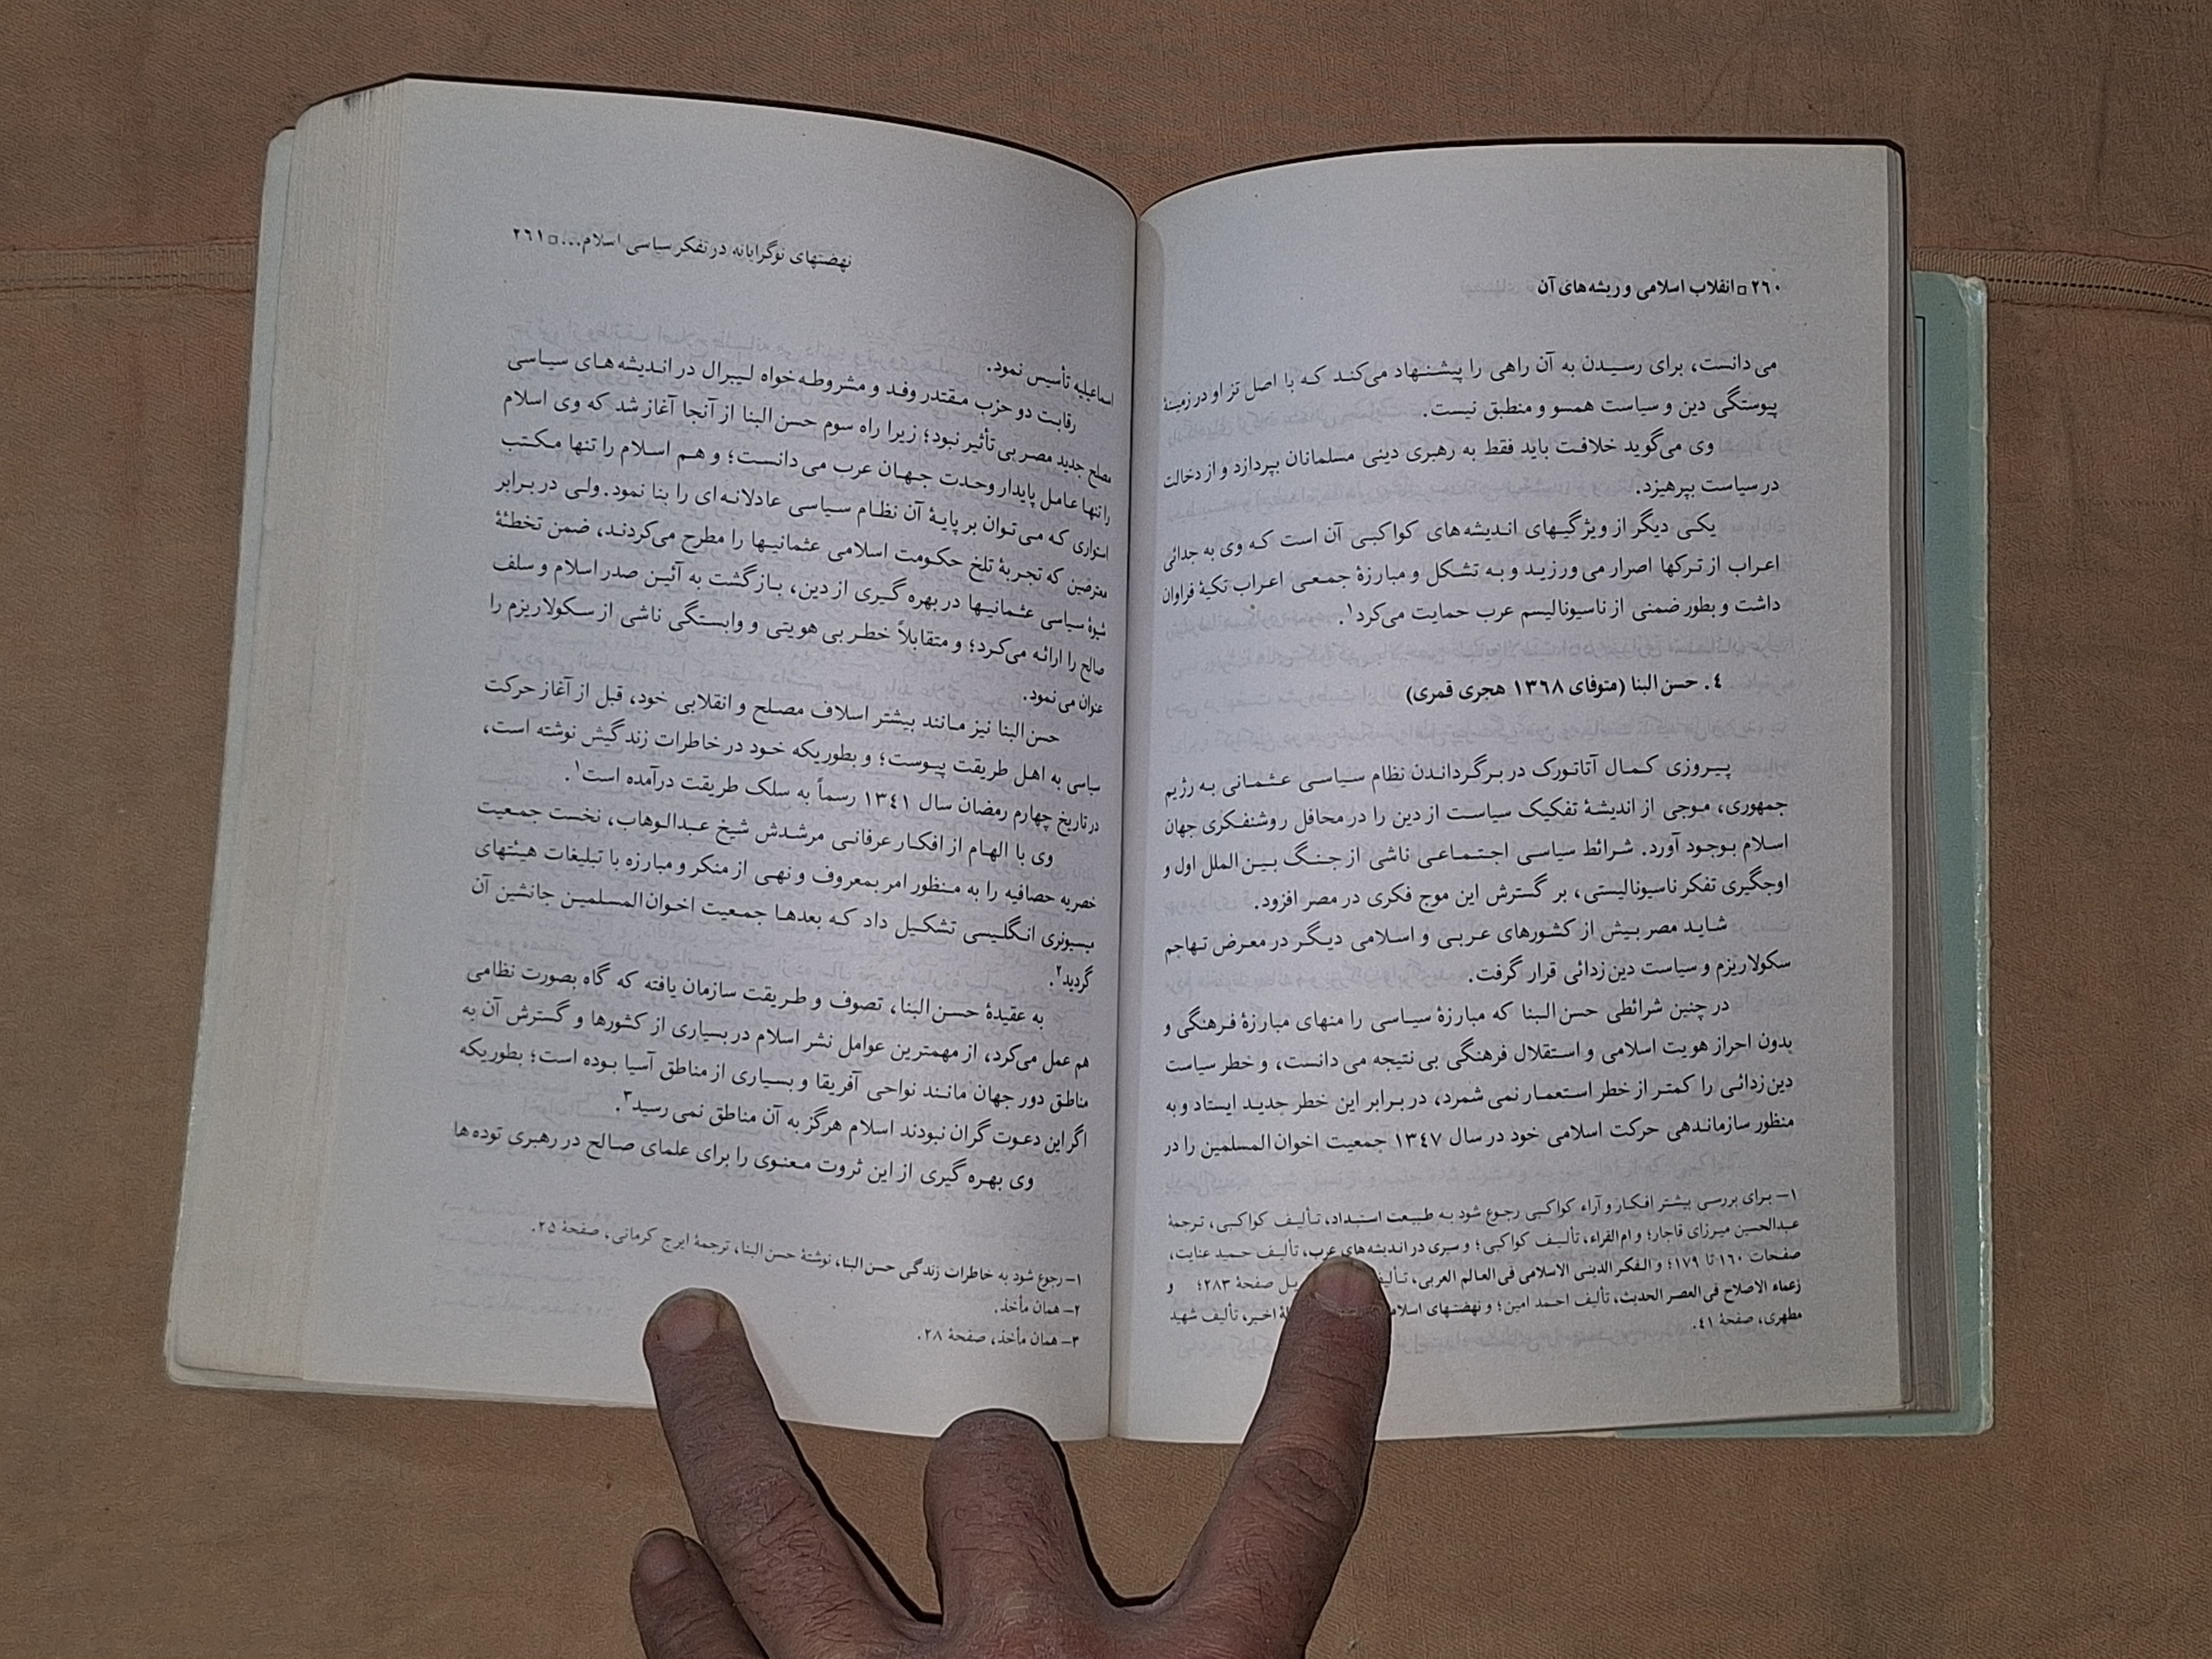 ٢٦٠ □ انقلاب اسلامی و ریشه‌های آن
می‌دانست، برای رسیدن به آن راهی را پیشنهاد می‌کند که با اصل تز او در زمینهٔ
پیوستگی دین و سیاست همسو و منطبق نیست.
وی می‌گوید خلافت باید فقط به رهبری دینی مسلمانان بپردازد و از دخالت
در سیاست بپرهیزد.
یکی دیگر از ویژگیهای اندیشه‌های کواکبی آن است که وی به جدائی
اعراب از ترکها اصرار می‌ورزید و به تشکل و مبارزهٔ جمعی اعراب تکیهٔ فراوان
داشت و بطور ضمنی از ناسیونالیسم عرب حمایت می‌کرد۱.
٤. حسن البنا (متوفای ١٣٦٨ هجری قمری)
پیروزی کمال آتاتورک در برگرداندن نظام سیاسی عثمانی به رژیم
جمهوری، موجی از اندیشهٔ تفکیک سیاست از دین را در محافل روشنفکری جهان
اسلام بوجود آورد. شرائط سیاسی اجتماعی ناشی از جنگ بین‌الملل اول و
اوجگیری تفکر ناسیونالیستی، بر گسترش این موج فکری در مصر افزود.
شاید مصر بیش از کشورهای عربی و اسلامی دیگر در معرض تهاجم
سکولاریزم و سیاست دین‌زدائی قرار گرفت.
در چنین شرائطی حسن البنا که مبارزهٔ سیاسی را منهای مبارزهٔ فرهنگی و
بدون احراز هویت اسلامی و استقلال فرهنگی بی نتیجه می دانست، و خطر سیاست
دین‌زدائی را کمتر از خطر استعمار نمی شمرد، در برابر این خطر جدید ایستاد و به
منظور سازماندهی حرکت اسلامی خود در سال ١٣٤٧ جمعیت اخوان المسلمین را در
١– برای بررسی بیشتر افکار و آراء کواکبی رجوع شود به طبیعت استبداد، تألیف کواکبی، ترجمهٔ
عبدالحسین میرزای قاجار؛ و ام‌القراء، تألیف کواکبی؛ و سیری در اندیشه‌های عرب، تألیف حمید عنایت،
صفحات ١٦٠ تا ١٧٩؛ و الفکر الدینی الاسلامی فی العالم العربی، تألیف صفحهٔ ٢٨٣؛ و
زعماء الاصلاح فی العصر الحدیث، تألیف احمد امین؛ و نهضتهای اسلامی اخیر، تألیف شهید
مطهری، صفحهٔ ٤١.
نهضتهای نوگرایانه در تفکر سیاسی اسلام... □ ٢٦١
اسماعیلیه تأسیس نمود.
رقابت دو حزب مقتدر وفد و مشروطه‌خواه لیبرال در اندیشه‌های سیاسی
مصلح جدید مصر بی‌تأثیر نبود؛ زیرا راه سوم حسن البنا از آنجا آغاز شد که وی اسلام
را تنها عامل پایدار وحدت جهان عرب می دانست؛ و هم اسلام را تنها مکتب
استواری که می توان بر پایهٔ آن نظام سیاسی عادلانه‌ای را بنا نمود. ولی در برابر
معترضین که تجربهٔ تلخ حکومت اسلامی عثمانیها را مطرح می‌کردند، ضمن تخطئهٔ
شیوهٔ سیاسی عثمانیها در بهره گیری از دین، بازگشت به آئین صدر اسلام و سلف
صالح را ارائه می‌کرد؛ و متقابلاً خطر بی هویتی و وابستگی ناشی از سکولاریزم را
عنوان می نمود.
حسن البنا نیز مانند بیشتر اسلاف مصلح و انقلابی خود، قبل از آغاز حرکت
سیاسی به اهل طریقت پیوست؛ و بطوریکه خود در خاطرات زندگیش نوشته است،
در تاریخ چهارم رمضان سال ١٣٤١ رسماً به سلک طریقت درآمده است۱.
وی با الهام از افکار عرفانی مرشدش شیخ عبدالوهاب، نخست جمعیت
خصریه حصافیه را به منظور امر بمعروف و نهی از منکر و مبارزه با تبلیغات هیئتهای
میسیونری انگلیسی تشکیل داد که بعدها جمعیت اخوان المسلمین جانشین آن
گردید۲.
به عقیدهٔ حسن البنا، تصوف و طریقت سازمان یافته که گاه بصورت نظامی
هم عمل می‌کرد، از مهمترین عوامل نشر اسلام در بسیاری از کشورها و گسترش آن به
مناطق دور جهان مانند نواحی آفریقا و بسیاری از مناطق آسیا بوده است؛ بطوریکه
اگر این دعوت گران نبودند اسلام هرگز به آن مناطق نمی رسید۳.
وی بهره گیری از این ثروت معنوی را برای علمای صالح در رهبری توده‌ها
١– رجوع شود به خاطرات زندگی حسن البنا، نوشتهٔ حسن البنا، ترجمهٔ ایرج کرمانی، صفحهٔ ٢٥.
٢– همان مأخذ.
٣– همان مأخذ، صفحهٔ ٢٨.